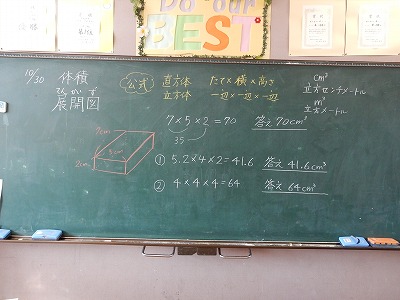 Do Our
BEST
10/30 体積
てんかいず
展開図
公式
直方体 たて×横×高さ
立方体 一辺×一辺×一辺
cm³
立方センチメートル
m³
立方メートル
7×5×2=70 答え 70cm³
35
7cm
5cm
2cm
① 5.2×4×2=41.6 答え 41.6cm³
② 4×4×4=64 答え 64cm³